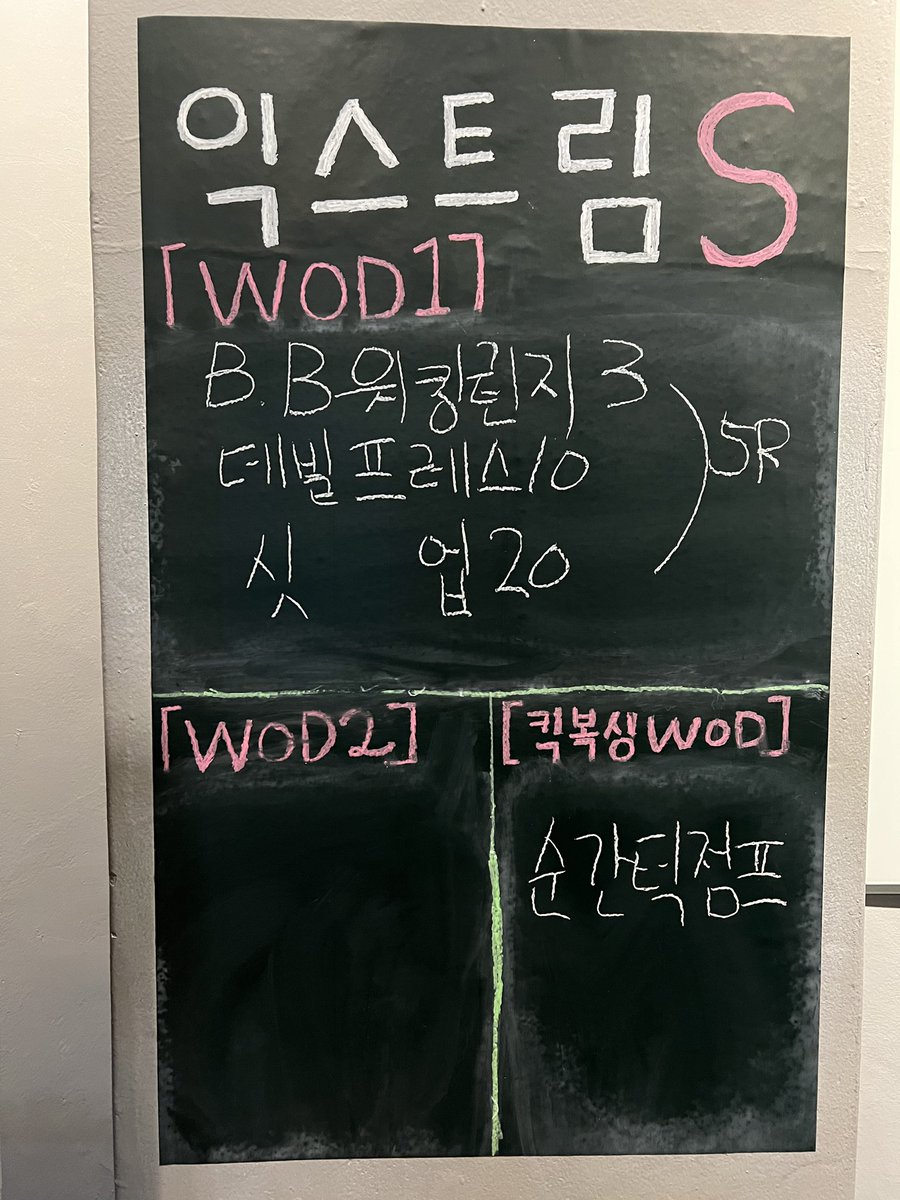 익스트림S
[WOD1]
B.B윗킹런지 3
데빌프레스10
싯 업20
5R
[WOD2]
[킥복싱WOD]
순간턱점프